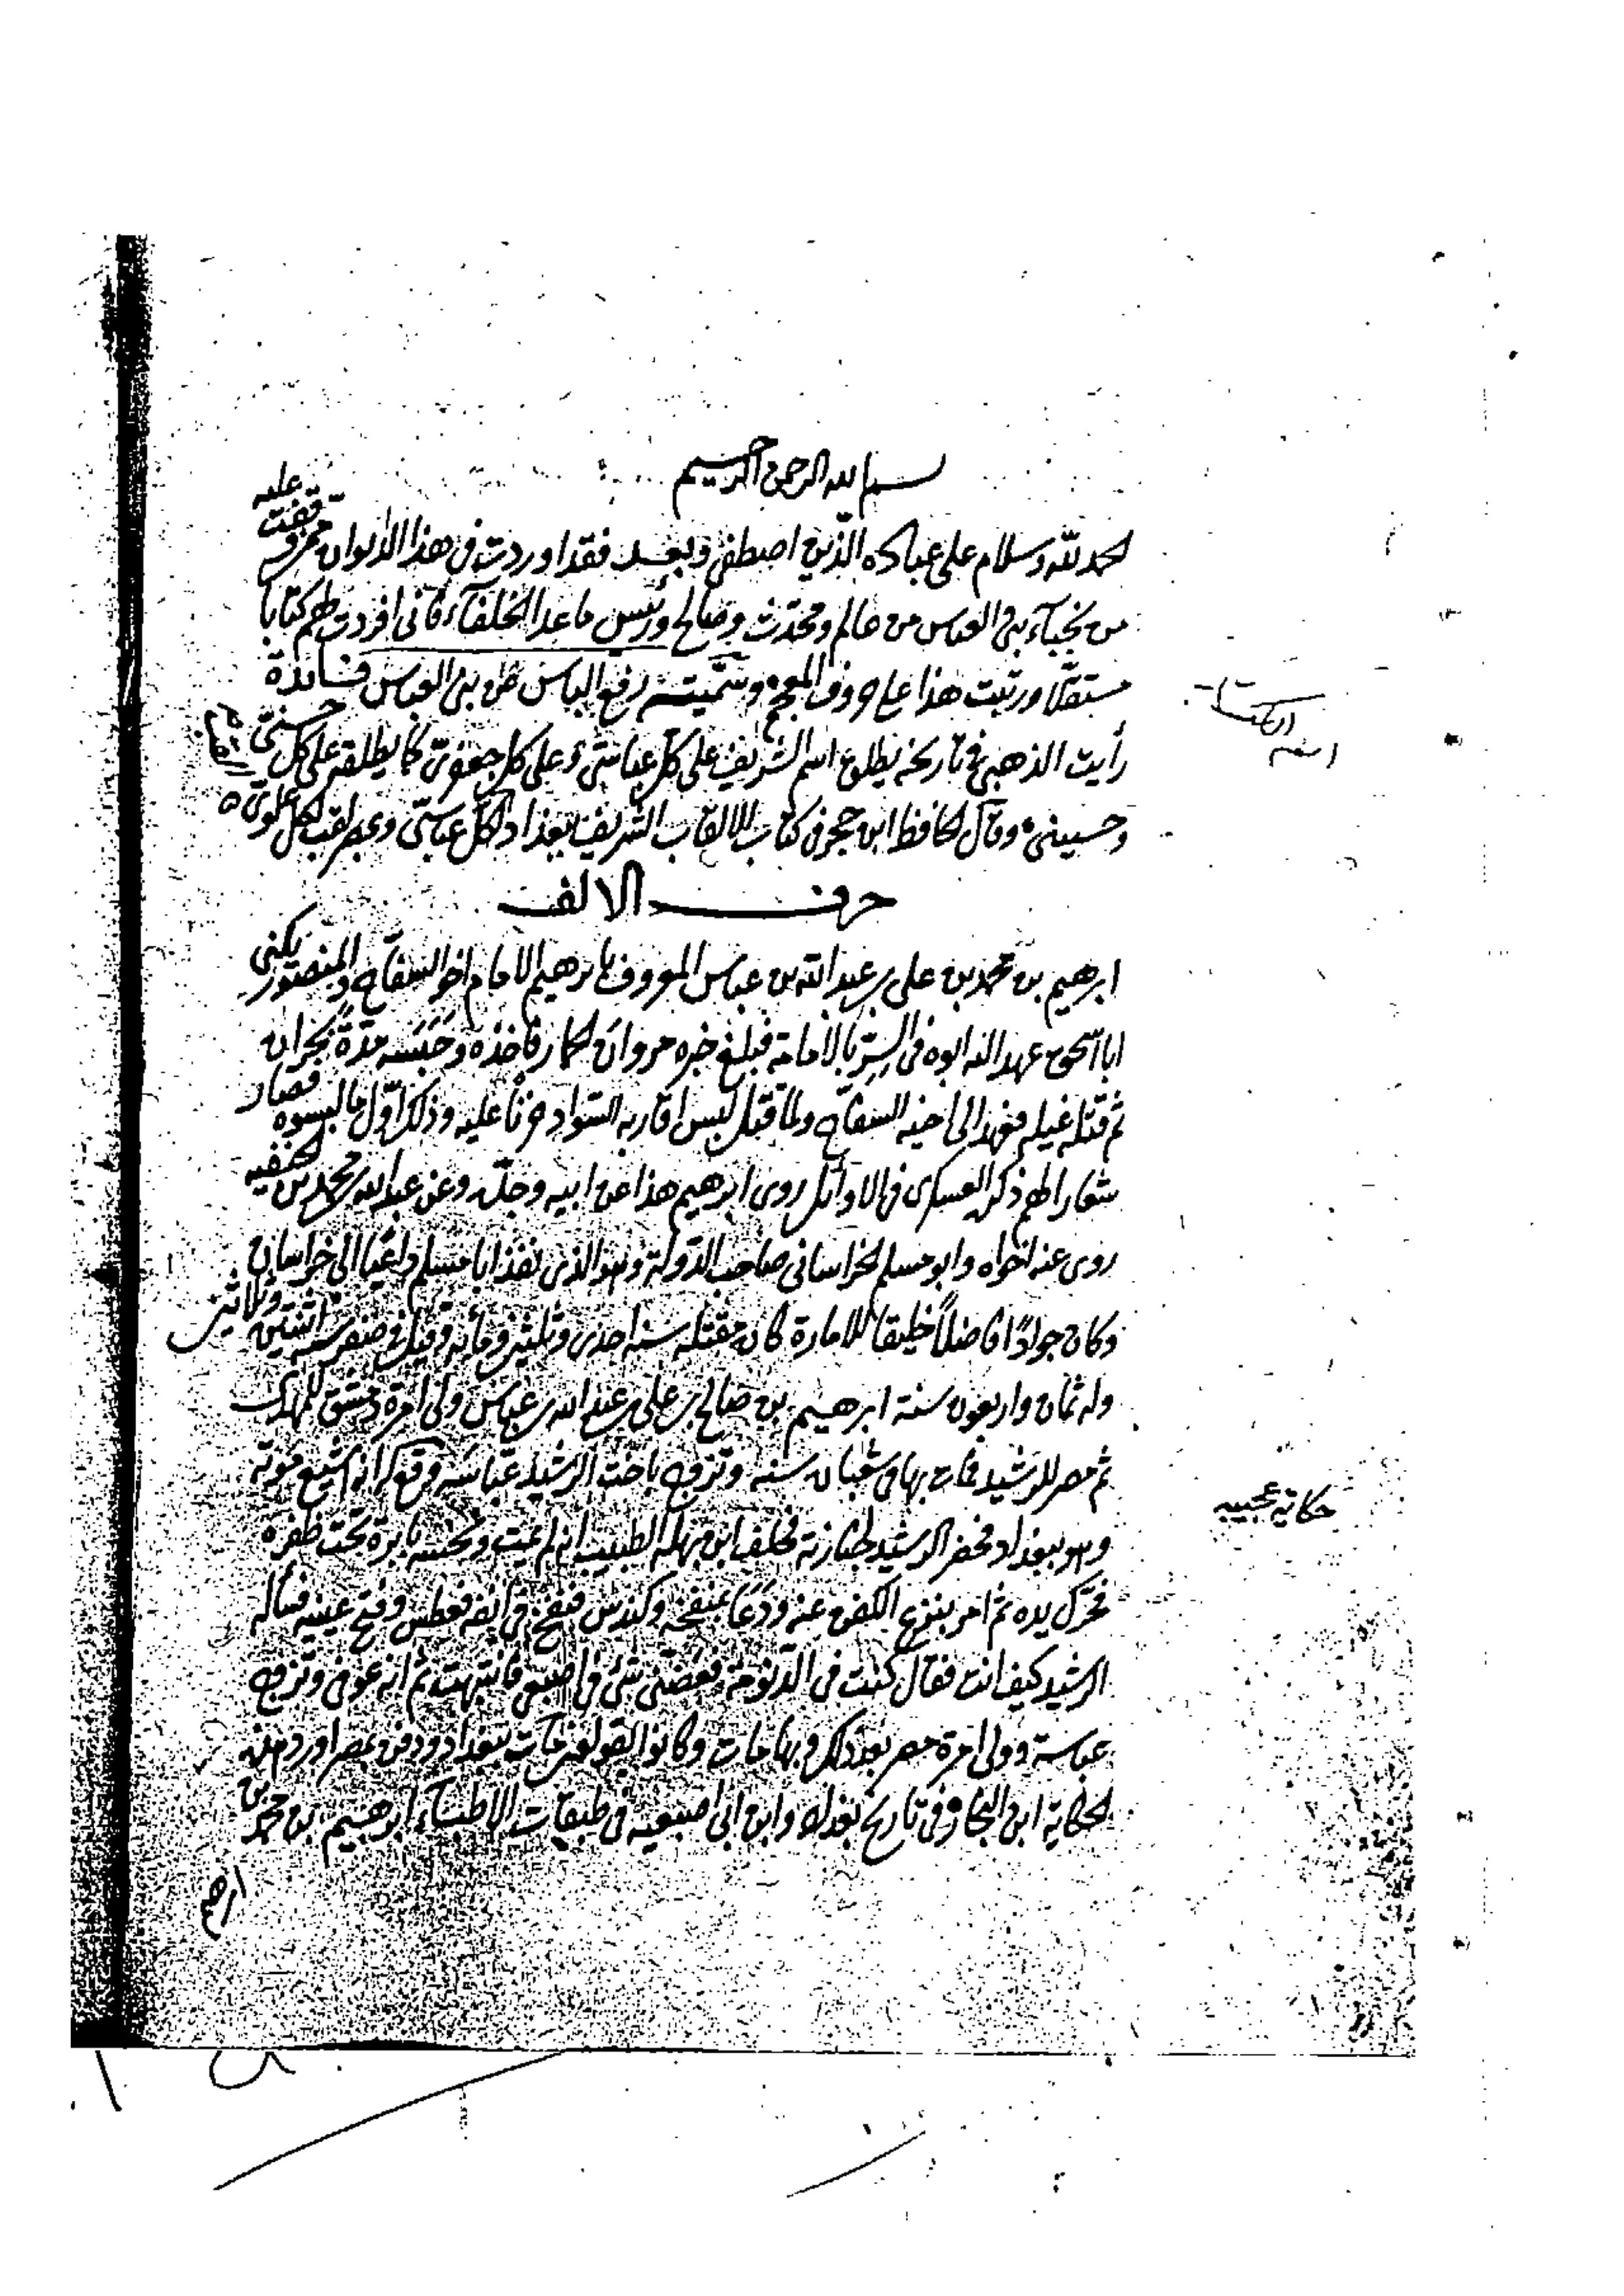 بسم الله الرحمن الرحيم
الحمد لله وسلام على عباده الذين اصطفى وبعد فقد اوردت في هذا الديوان من وقفت عليه
من نجباء بني العباس من عالم ومحدث وصالح ورئيس ما عدا الخلفآء فانى افردت لهم كتابا
مستقلا ورتبت هذا على حروف المعجم وسميته رفع الباس عن بني العباس فــائدة
رأيت الذهبي في تاريخه يطلق اسم الشريف على كل عباسي وعلى كل جعفري كما يطلقه على كل حسني
وحسيني وقال الحافظ ابن حجر في كتاب الالقاب الشريف ببغداد لكل عباسي وبمصر لقب لكل علوي
اسم الكتاب
حرف الالف
ابرهيم بن محمد بن علي بن عبد الله بن عباس المعروف بابرهيم الامام اخو السفاح والمنصور يكنى
ابا اسحق عهد اليه ابوه في السر بالامامة فبلغ خبره مروان الحمار فاخذه وحبسه مدة بحران
ثم قتله غيلة فعهد الى اخيه السفاح ولما قتل لبس اقاربه السواد حزنا عليه وذلك اول ما لبسوه فصار
شعارا لهم ذكره العسكرى في الاوائل روى ابرهيم هذا عن ابيه وجده وعن عبد الله بن محمد بن الحنفيه
روى عنه اخواه وابو مسلم الخراساني صاحب الدولة وهو الذى نفذ ابا مسلم داعيا الى خراسان
وكان جوادا فاضلا خليقا للامارة كان مقتله سنه احدى وثلثين ومأيه وقيل في صفر سنه اثنتين وثلاثين
وله ثمان واربعون سنة ابرهيم بن صالح بن علي بن عبد الله بن عباس ولى امرة دمشق للمهدى
ثم مصر للرشيد فمات بها في شعبان سنه وتزوج باخت الرشيد عباسه وقع له انه اشيع موته
حكاية عجيبه
وهو ببغداد فحضر الرشيد لجنازته فحلف ابن بهلة الطبيب انه لم يمت ونخسه بابرة تحت ظفره
فحرك يده ثم امر بنزع الكفن عنه ودعا بمنفخة وكندس فنفخ في انفه فعطس وفتح عينيه فسأله
الرشيد كيف انت فقال كنت في الذ نومة فعضني شئ في اصبعي فانتبهت ثم انه عوفي وتزوج
عباسة وولى امرة مصر بعد ذلك وبها مات وكانوا يقولون مات ببغداد ودفن بمصر اورد هذه
الحكاية ابن النجار في تاريخ بغداد وابن ابي اصيبعه في طبقات الاطباء ابرهيم بن محمد بن
ابرهيم